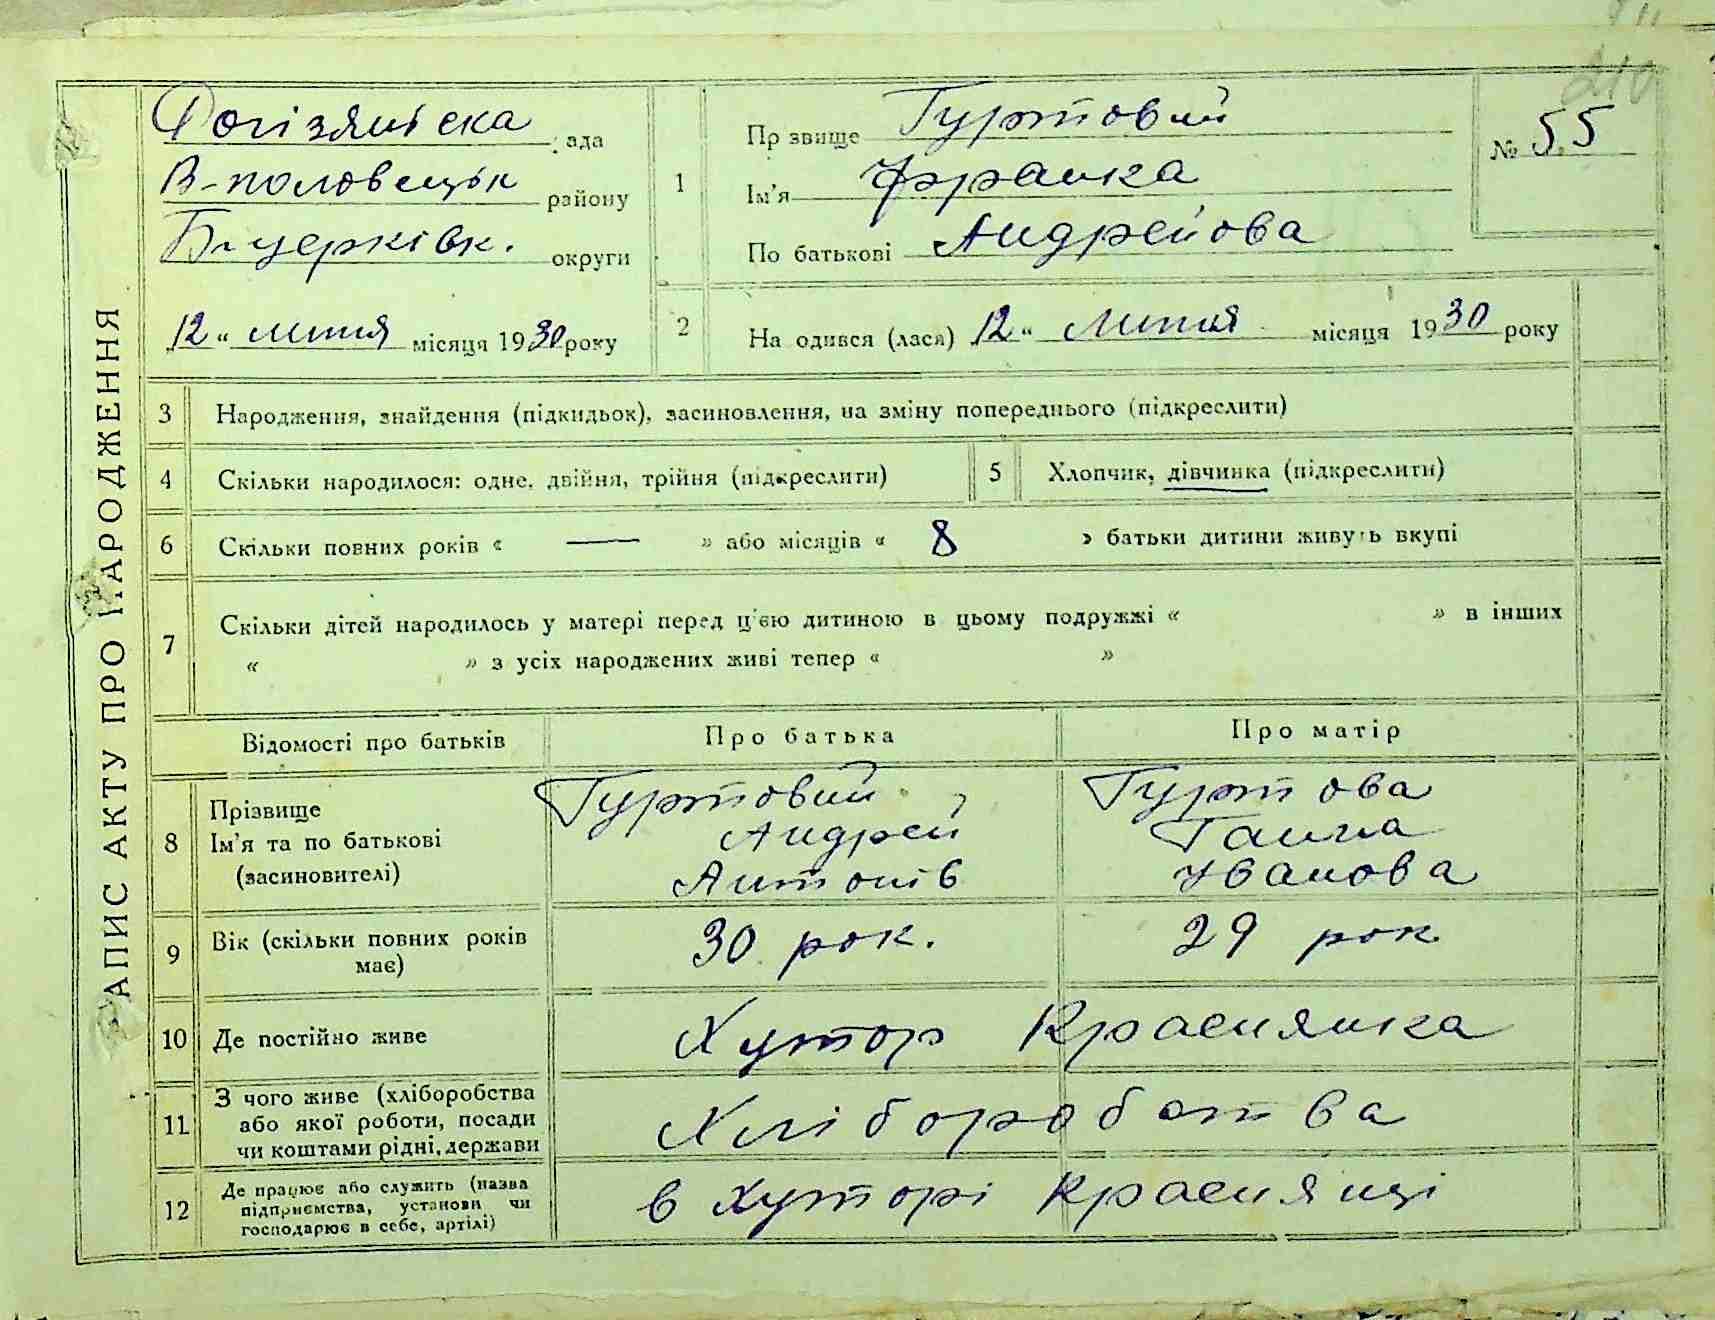 210
АПИС АКТУ ПРО НАРОДЖЕННЯ
Рогізянська ада
В-половецьк району
Б-церківк. округи
12 " липня місяця 1930 року
1
Пр звище Гуртовий
Ім'я Франка
По батькові Андрейова
№ 55
2
На одився (лася) 12 " липня місяця 1930 року
3 Народження, знайдення (підкидьок), засиновлення, на зміну попереднього (підкреслити)
4 Скільки народилося: одне, двійня, трійня (підкреслити)
5 Хлопчик, дівчинка (підкреслити)
6 Скільки повних років « — » або місяців « 8 » батьки дитини живуть вкупі
7 Скільки дітей народилось у матері перед цією дитиною в цьому подружжі « » в інших
« » з усіх народжених живі тепер « »
Відомості про батьків Про батька Про матір
8 Прізвище Гуртовий Гуртова
Ім'я та по батькові Андрей Ганна
(засиновителі) Антонів Іванова
9 Вік (скільки повних років 30 рок. 29 рок
має)
10 Де постійно живе Хутор Краснянка
11 З чого живе (хліборобства
або якої роботи, посади Хліборобства
чи коштами рідні, держави
12 Де працює або служить (назва
підприємства, установи чи в Хуторі Краснянці
господарює в себе, артілі)